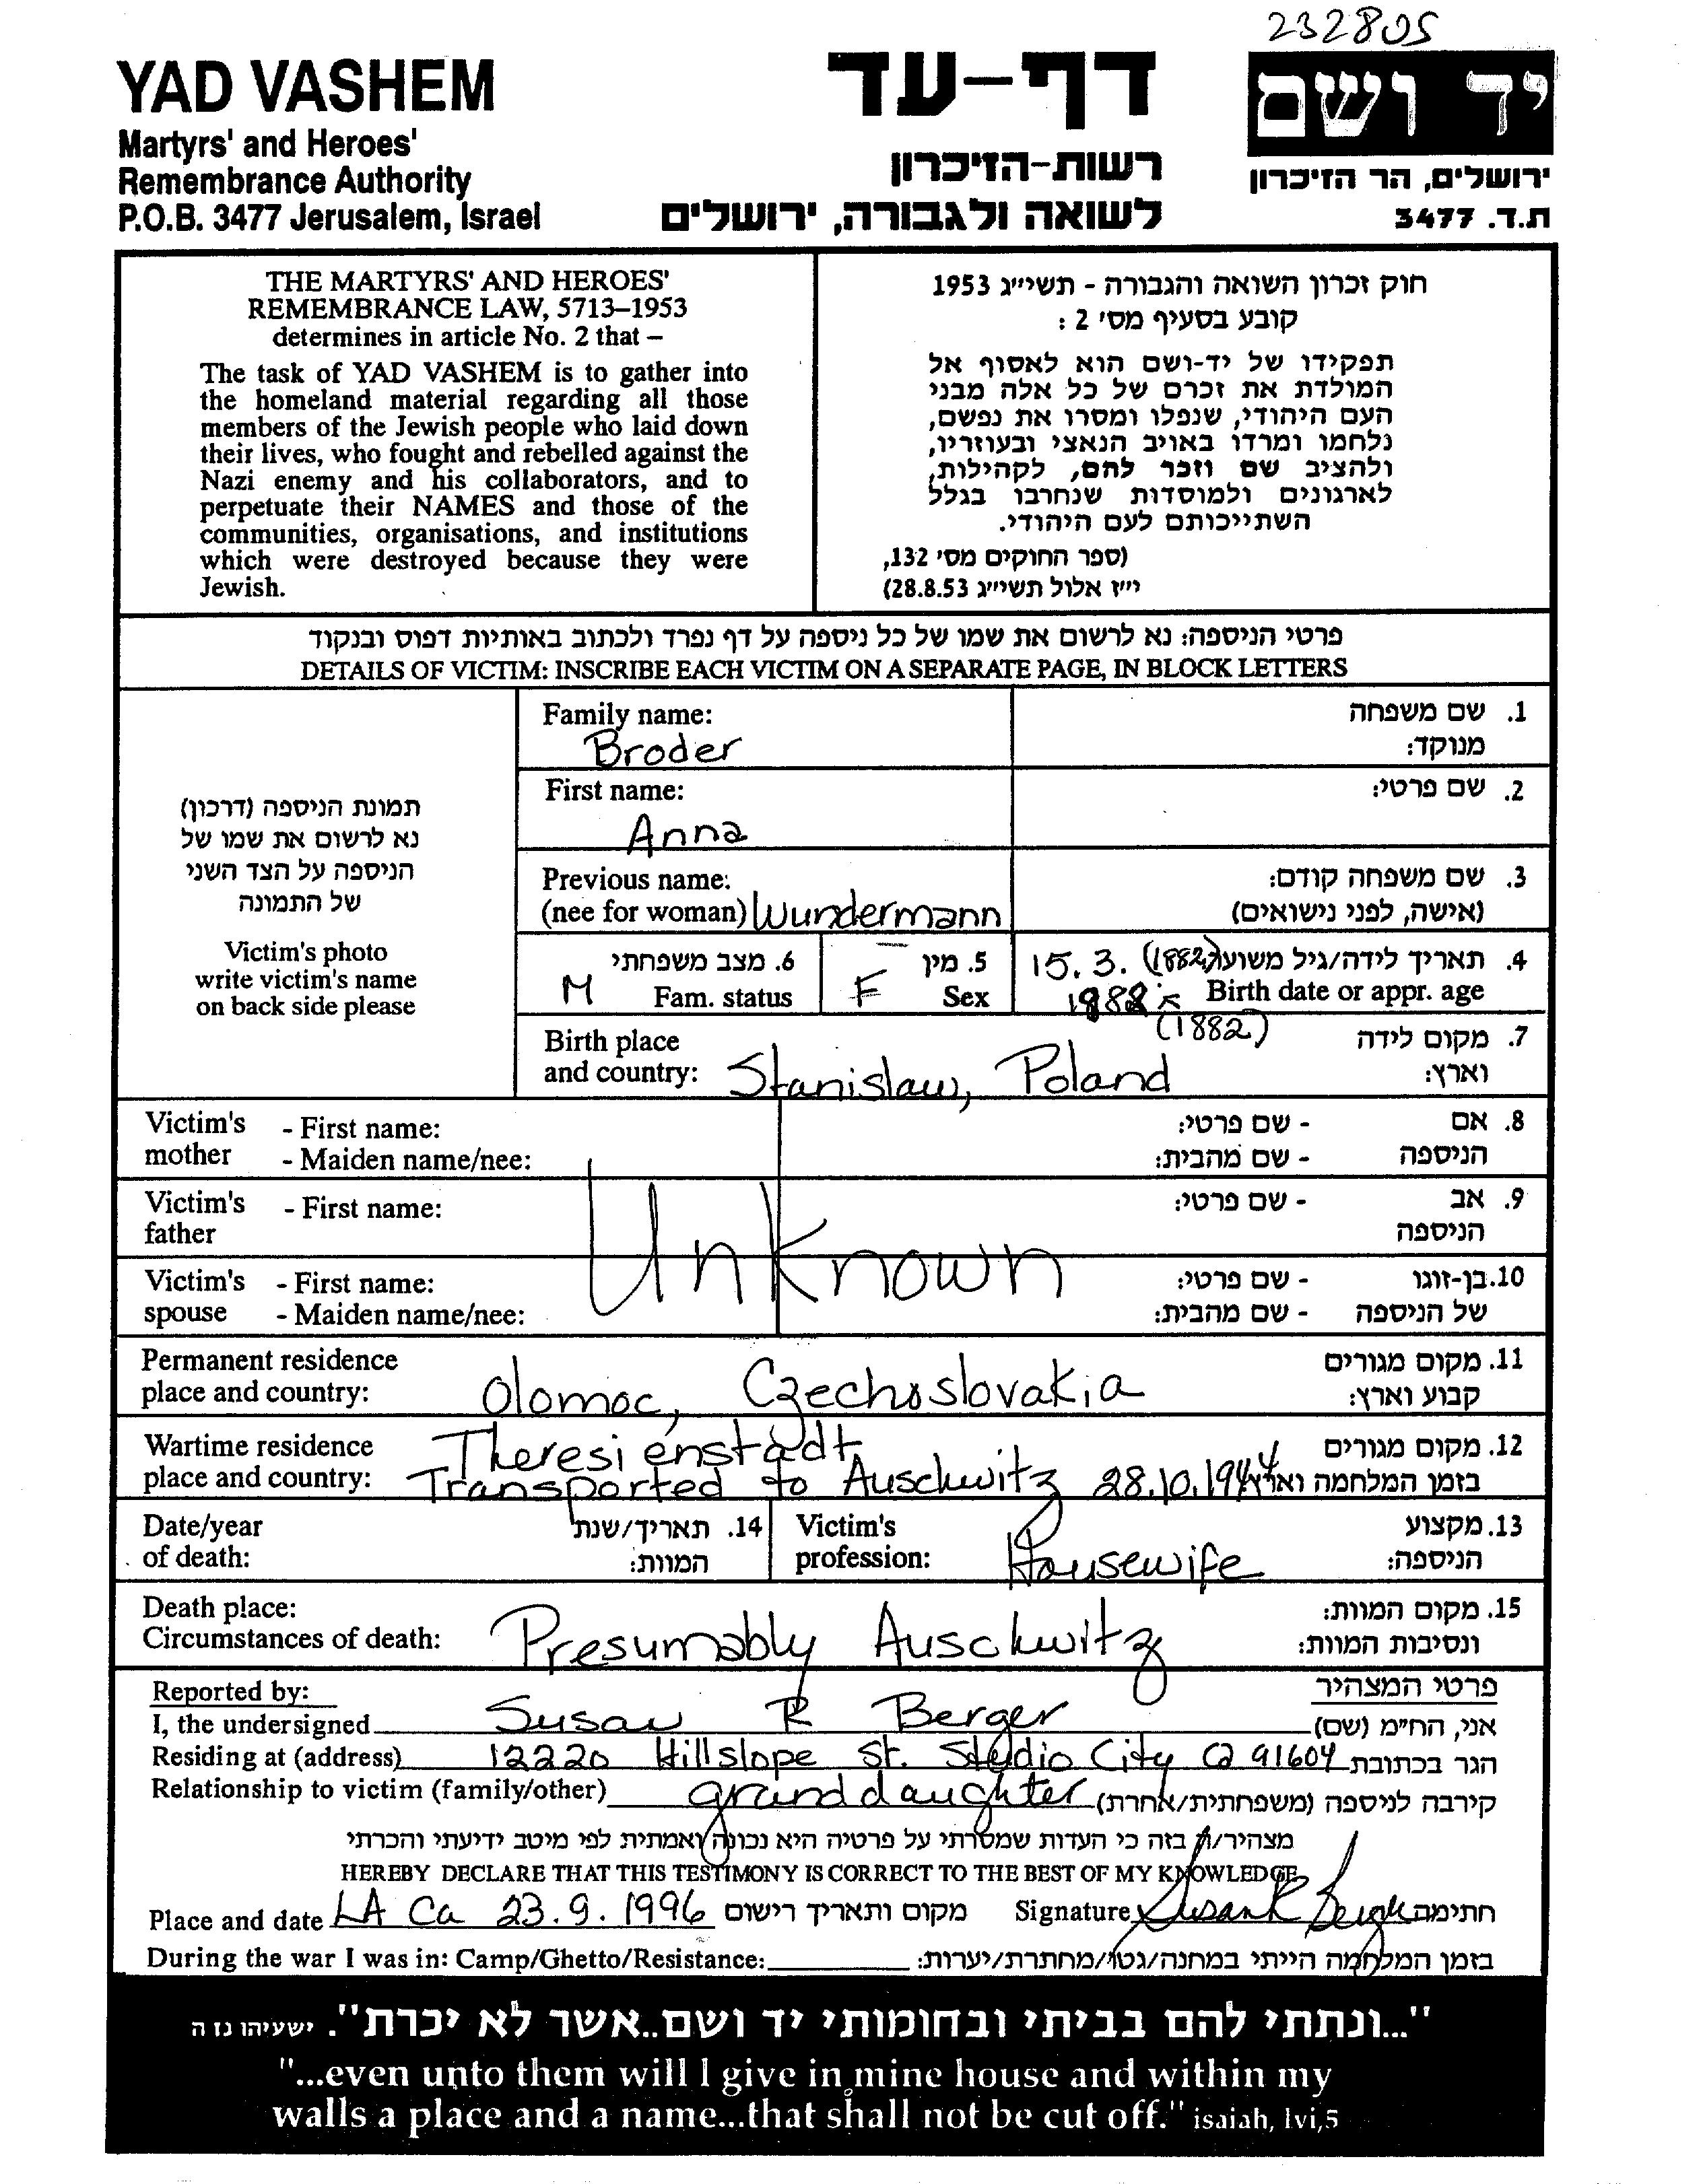 232805
YAD VASHEM
Martyrs' and Heroes'
Remembrance Authority
P.O.B. 3477 Jerusalem, Israel
דף-עד
רשות-הזיכרון
לשואה ולגבורה, ירושלים
יד ושם
ירושלים, הר הזיכרון
ת.ד. 3477
THE MARTYRS' AND HEROES'
REMEMBRANCE LAW, 5713–1953
determines in article No. 2 that –
The task of YAD VASHEM is to gather into
the homeland material regarding all those
members of the Jewish people who laid down
their lives, who fought and rebelled against the
Nazi enemy and his collaborators, and to
perpetuate their NAMES and those of the
communities, organisations, and institutions
which were destroyed because they were
Jewish.
חוק זכרון השואה והגבורה - תשי״ג 1953
קובע בסעיף מס' 2 :
תפקידו של יד-ושם הוא לאסוף אל
המולדת את זכרם של כל אלה מבני
העם היהודי, שנפלו ומסרו את נפשם,
נלחמו ומרדו באויב הנאצי ובעוזריו,
ולהציב שם וזכר להם, לקהילות,
לארגונים ולמוסדות שנחרבו בגלל
השתייכותם לעם היהודי.
(ספר החוקים מס' 132,
י״ז אלול תשי״ג 28.8.53)
פרטי הניספה: נא לרשום את שמו של כל ניספה על דף נפרד ולכתוב באותיות דפוס ובנקוד
DETAILS OF VICTIM: INSCRIBE EACH VICTIM ON A SEPARATE PAGE, IN BLOCK LETTERS
תמונת הניספה (דרכון)
נא לרשום את שמו של
הניספה על הצד השני
של התמונה
Victim's photo
write victim's name
on back side please
Family name:
Broder
1. שם משפחה
מנוקד:
First name:
Anna
2. שם פרטי:
Previous name:
(nee for woman) Wundermann
3. שם משפחה קודם:
(אישה, לפני נישואים)
6. מצב משפחתי
M Fam. status
5. מין
F Sex
4. תאריך לידה/גיל משוער
15. 3. (1882)
1888 Birth date or appr. age
(1882)
Birth place
and country: Stanislaw, Poland
7. מקום לידה
וארץ:
Victim's - First name:
mother - Maiden name/nee:
8. אם - שם פרטי:
הניספה - שם מהבית:
Victim's - First name:
father
Unknown
9. אב - שם פרטי:
הניספה
Victim's - First name:
spouse - Maiden name/nee:
10. בן-זוגו - שם פרטי:
של הניספה - שם מהבית:
Permanent residence
place and country: Olomoc, Czechoslovakia
11. מקום מגורים
קבוע וארץ:
Wartime residence Theresienstadt
place and country: Transported to Auschwitz 28.10.1944
12. מקום מגורים
בזמן המלחמה וארץ
Date/year
of death:
14. תאריך/שנת
המוות:
Victim's
profession: Housewife
13. מקצוע
הניספה:
Death place:
Circumstances of death: Presumably Auschwitz
15. מקום המוות:
ונסיבות המוות:
Reported by: פרטי המצהיר
I, the undersigned Susan R Berger אני, הח״מ (שם)
Residing at (address) 12220 Hillslope St. Studio City Ca 91604 הגר בכתובת
Relationship to victim (family/other) granddaughter קירבה לניספה (משפחתית/אחרת)
מצהיר/ה בזה כי העדות שמסרתי על פרטיה היא נכונה ואמתית לפי מיטב ידיעתי והכרתי
HEREBY DECLARE THAT THIS TESTIMONY IS CORRECT TO THE BEST OF MY KNOWLEDGE
Place and date LA Ca 23.9.1996 מקום ותאריך רישום Signature Susan R Berger חתימה
During the war I was in: Camp/Ghetto/Resistance: בזמן המלחמה הייתי במחנה/גטו/מחתרת/יערות:
"...ונתתי להם בביתי ובחומותי יד ושם..אשר לא יכרת". ישעיהו נו ה
"...even unto them will I give in mine house and within my
walls a place and a name...that shall not be cut off." isaiah, lvi,5